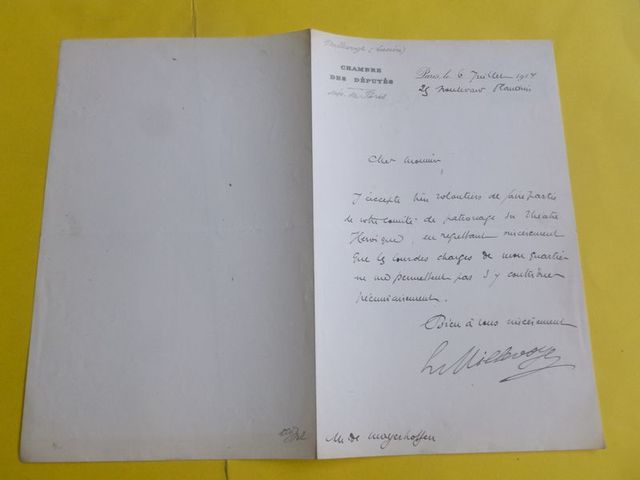 Millevoye (Lucien)
CHAMBRE
DES DÉPUTÉS
dép. de Paris
Paris le 6 Juillet 1914
25 boulevard
Cher monsieur,
J'accepte bien volontiers de faire partie
de votre comité de patronage du Theatre
Heroique, en regrettant sincerement
que les lourdes charges de mon quartier
ne me permettent pas d'y contribuer
pécuniairement.
Bien à vous sincèrement
Millevoye
M. de Mayerhoffen